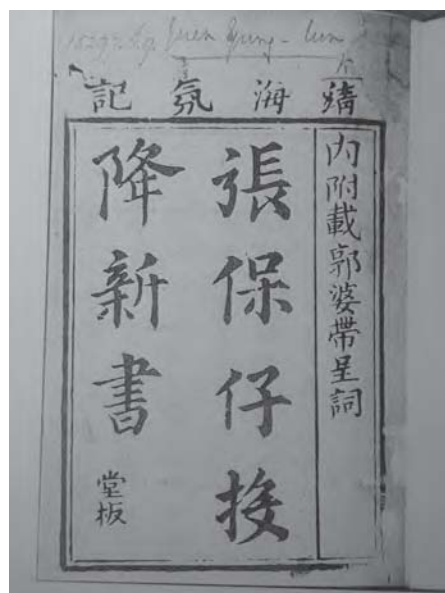 Yuen Yung-lun
靖海氛記
內附載郭婆帶呈詞
張保仔投
降新書
堂板